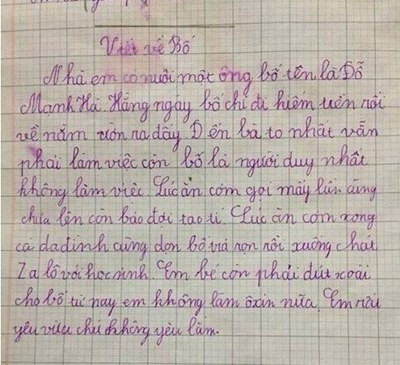 Viết về Bố
Nhà em có nuôi một ông bố tên là Đỗ
Mạnh Hà. Hằng ngày bố chỉ đi kiếm tiền rồi
về nằm ườn ra đấy Đến bà to nhất vẫn
phải làm việc còn bố là người duy nhất
không làm việc. Lúc ăn cơm gọi mấy lần cũng
chưa lên còn bảo đợi tao tí. Lúc ăn cơm xong
cả da dình cùng dọn bố vả rọn rồi xuống chat
Za lô với học sinh. Em bé còn phải đút xoài
cho bố từ nay em không làm ôxin nữa. Em
yêu vừa chứ không yêu lắm.